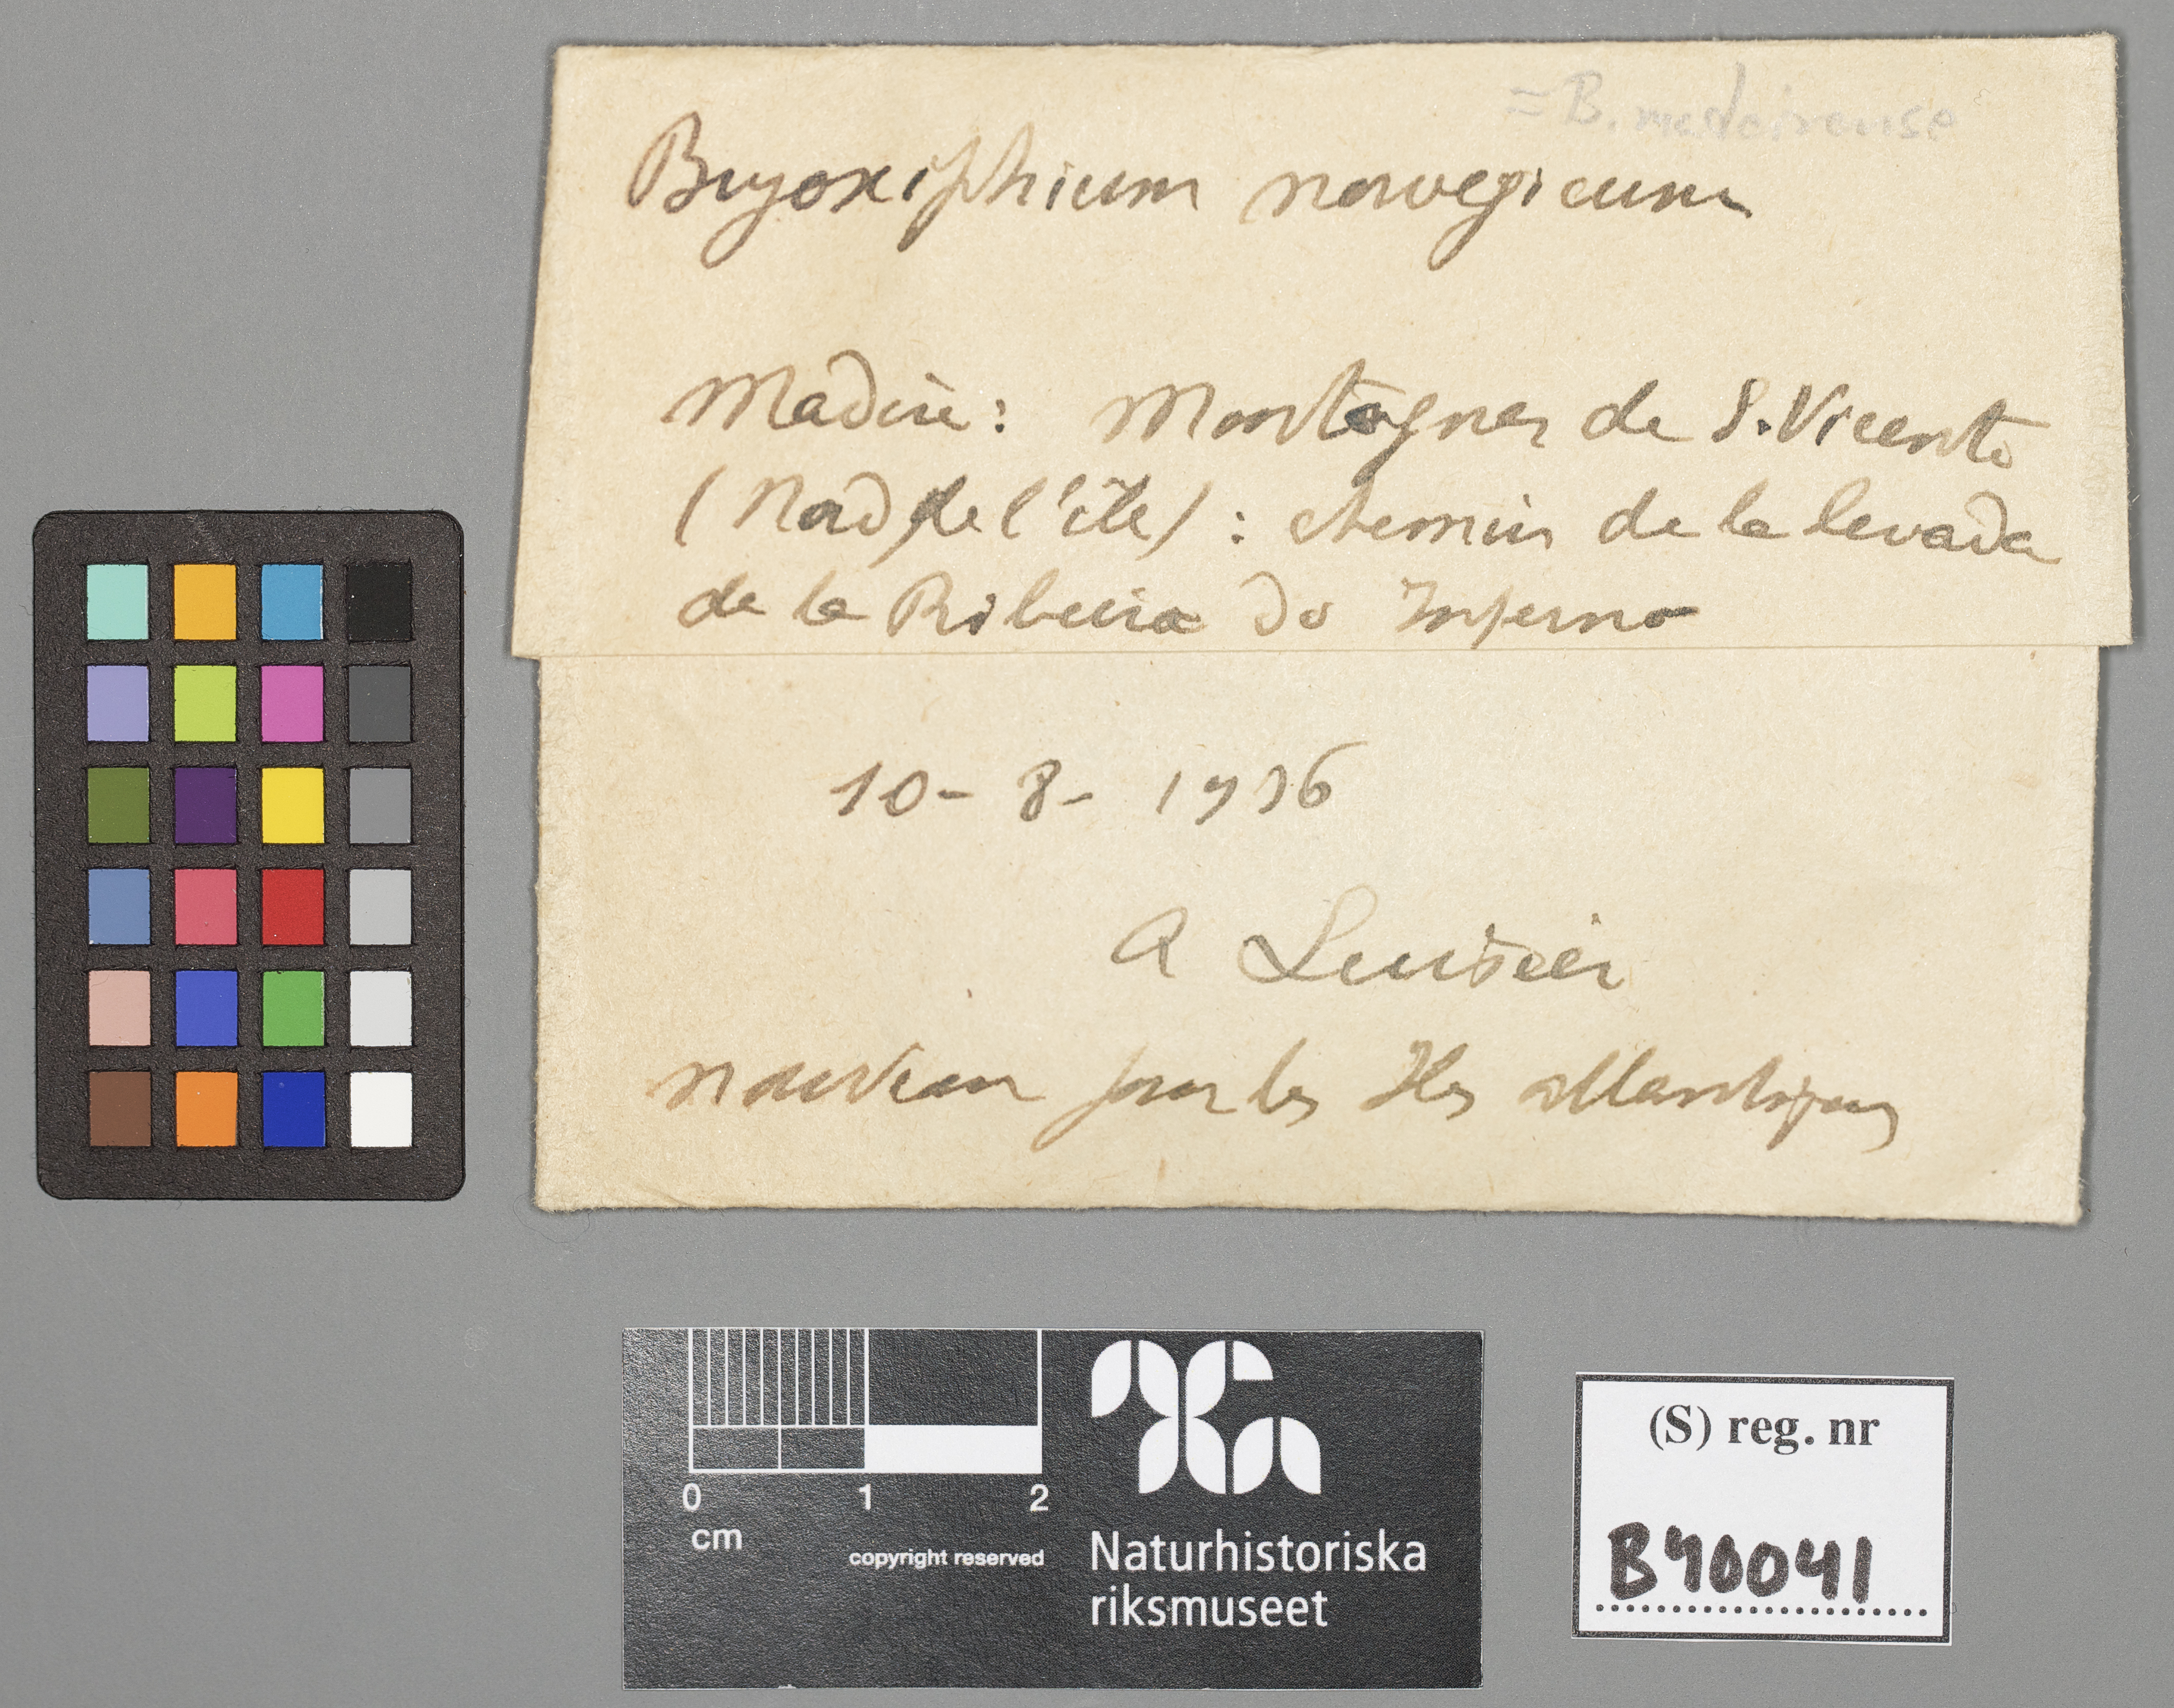 = B. madeirense
Bryoxiphium norvegicum
Madère: Montagnes de S. Vicente
(Nord de l'île) : chemin de la levada
de la Ribeira do Inferno
10 - 8 - 1936
A Luisier
nouveau pour les Iles atlantiques
0 1 2
cm
copyright reserved
Naturhistoriska
riksmuseet
(S) reg. nr
B40041